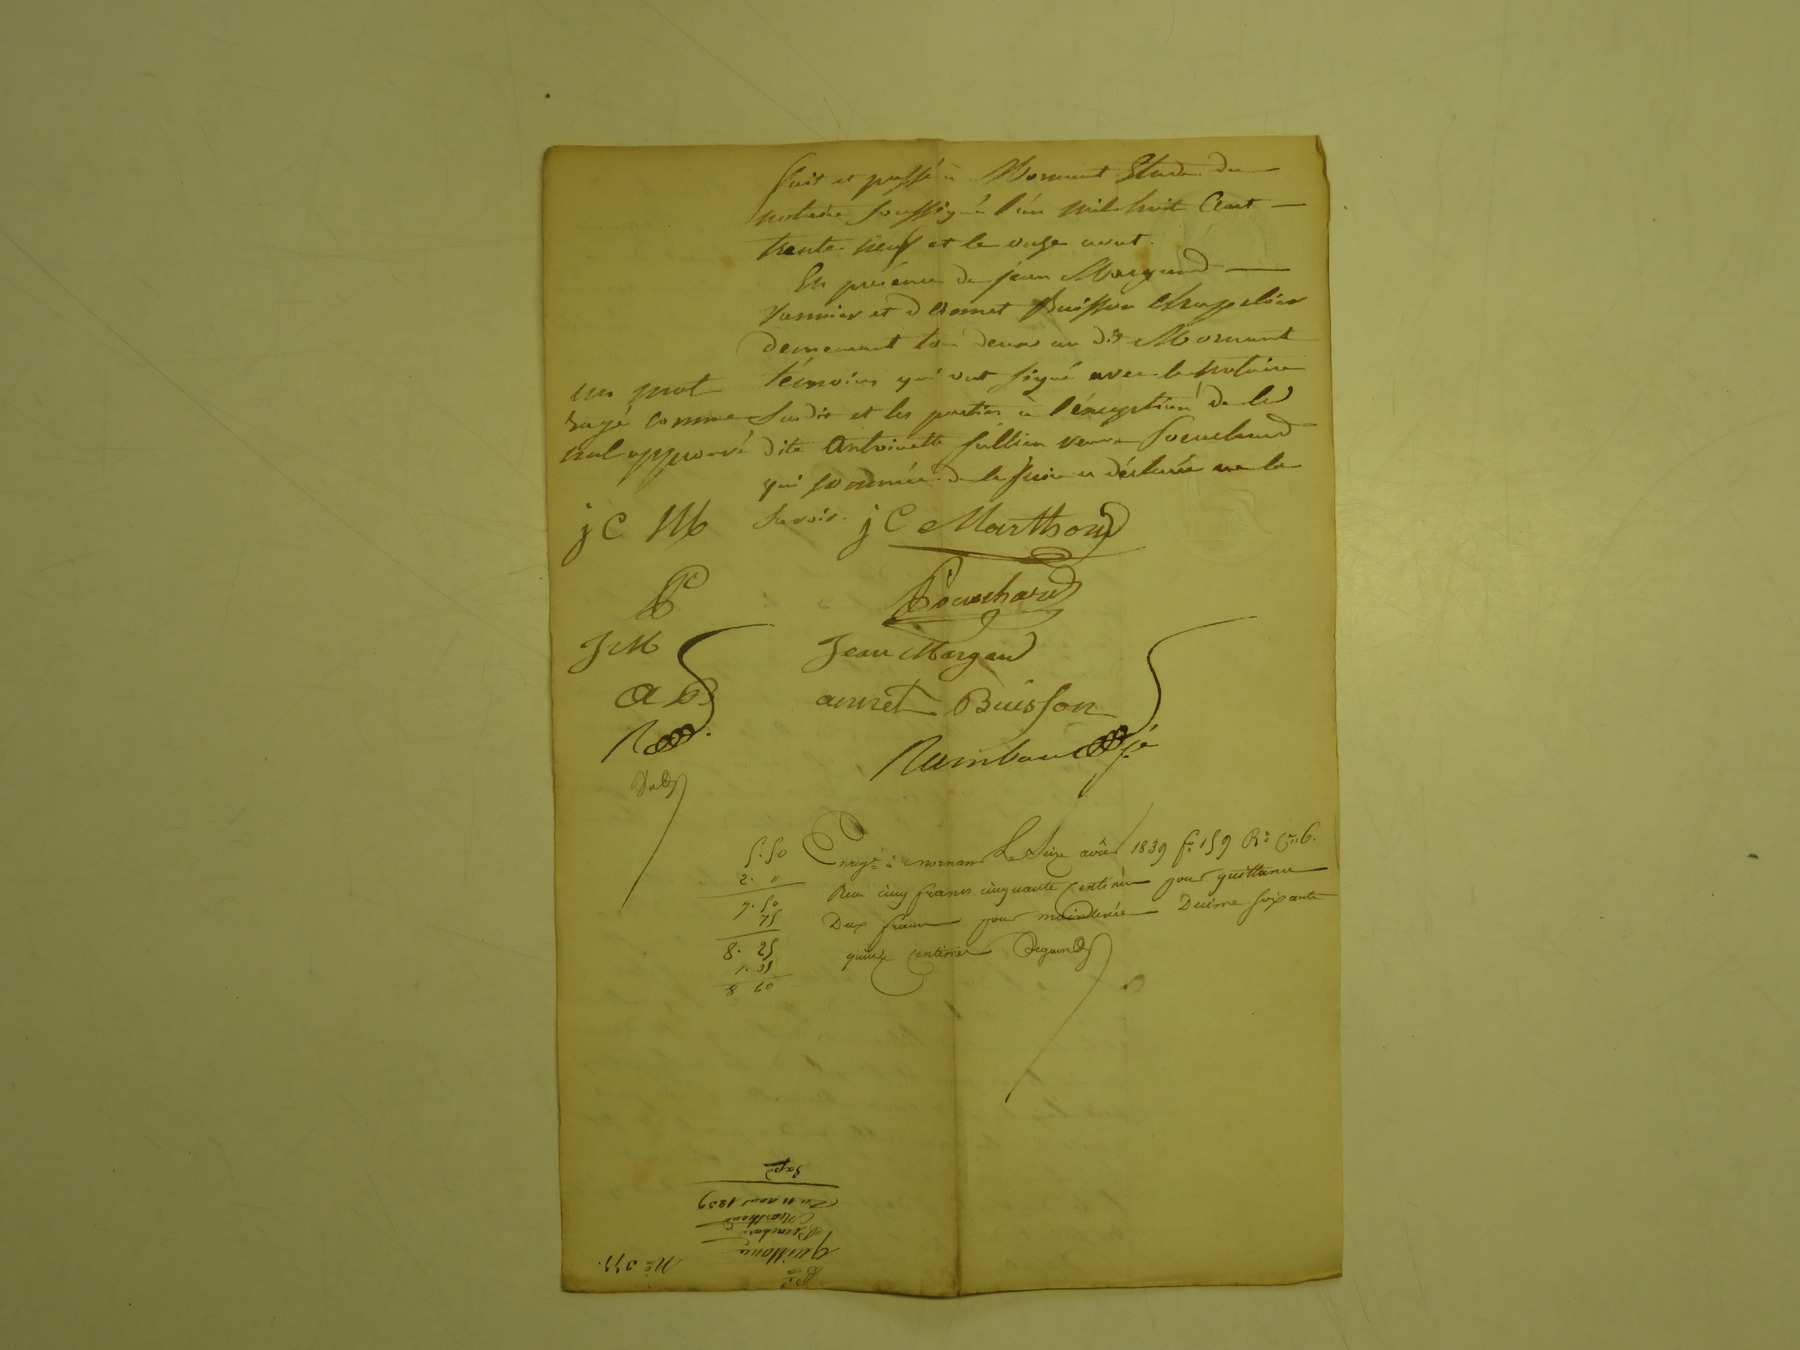 fait et passé à Mornant Etude du
notaire soussigné l'an mil huit Cent
trente neuf et le onze aout.
En présence de jean Margand
Vannier et d'Ennet Buisson Chapelier
demeurant tou deux au dit Mornant
témoins qui ont signé avec le notaire
susdit et les parties à l'éxception de la
dite Antoinette Jullien veuve Pouchard
qui sommée de le faire a déclaré ne le
savoir. j C Marthoud
un mot
rayé comme
nul approuvé
j C M
Pouchard
JM
Jean Margand
a B
annet Buisson
Raimbau
Enreg.é à mornant Le Seize août 1839 f.o 159 R.o C.n 6.
Reçu cinq francs cinquante Centimes pour quittance
Deux francs pour mainlevée Decime soixante
quinze Centimes
5.50
2. "
7.50
75
8.25
8 60
N.o 377.
quittance
Pouchard
Marthoud
Du 11 aout 1839